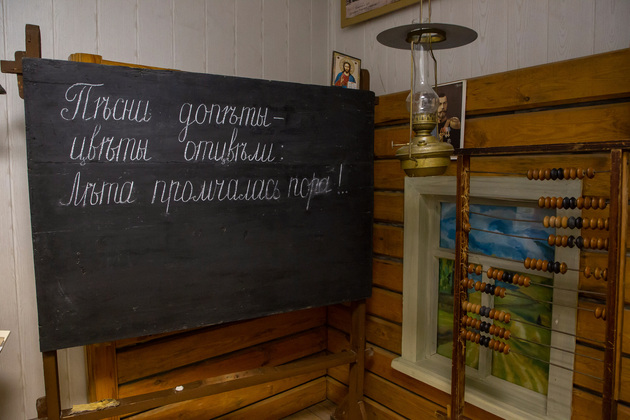 Пѣсни допѣты–
цвѣты отцвѣли:
Лѣта промчалась пора!..